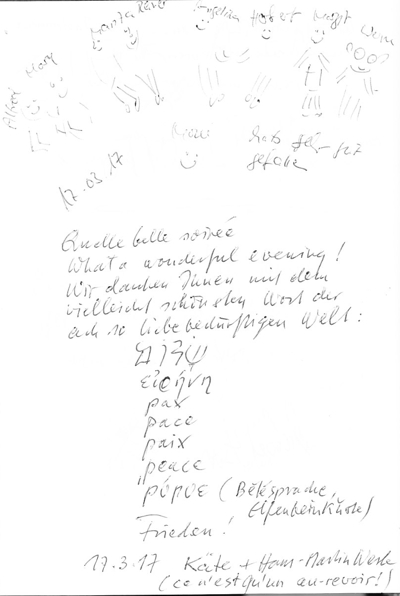 Albert Mary Marita René Angelina Herbert Margit Werner
René
hats sehr gut
gefallen
17.03.17
Quelle belle soireé
What a wonderful evening!
Wir danken Ihnen mit dem
vielleicht schönsten Wort der
ach so liebebedürftigen Welt:
εἰρήνη
pax
pace
paix
peace
(Bétésprache,
Elfenbeinküste)
Frieden!
17.3.17 Käte + Hans-Martin
(ce n'est qu'un au-revoir!)